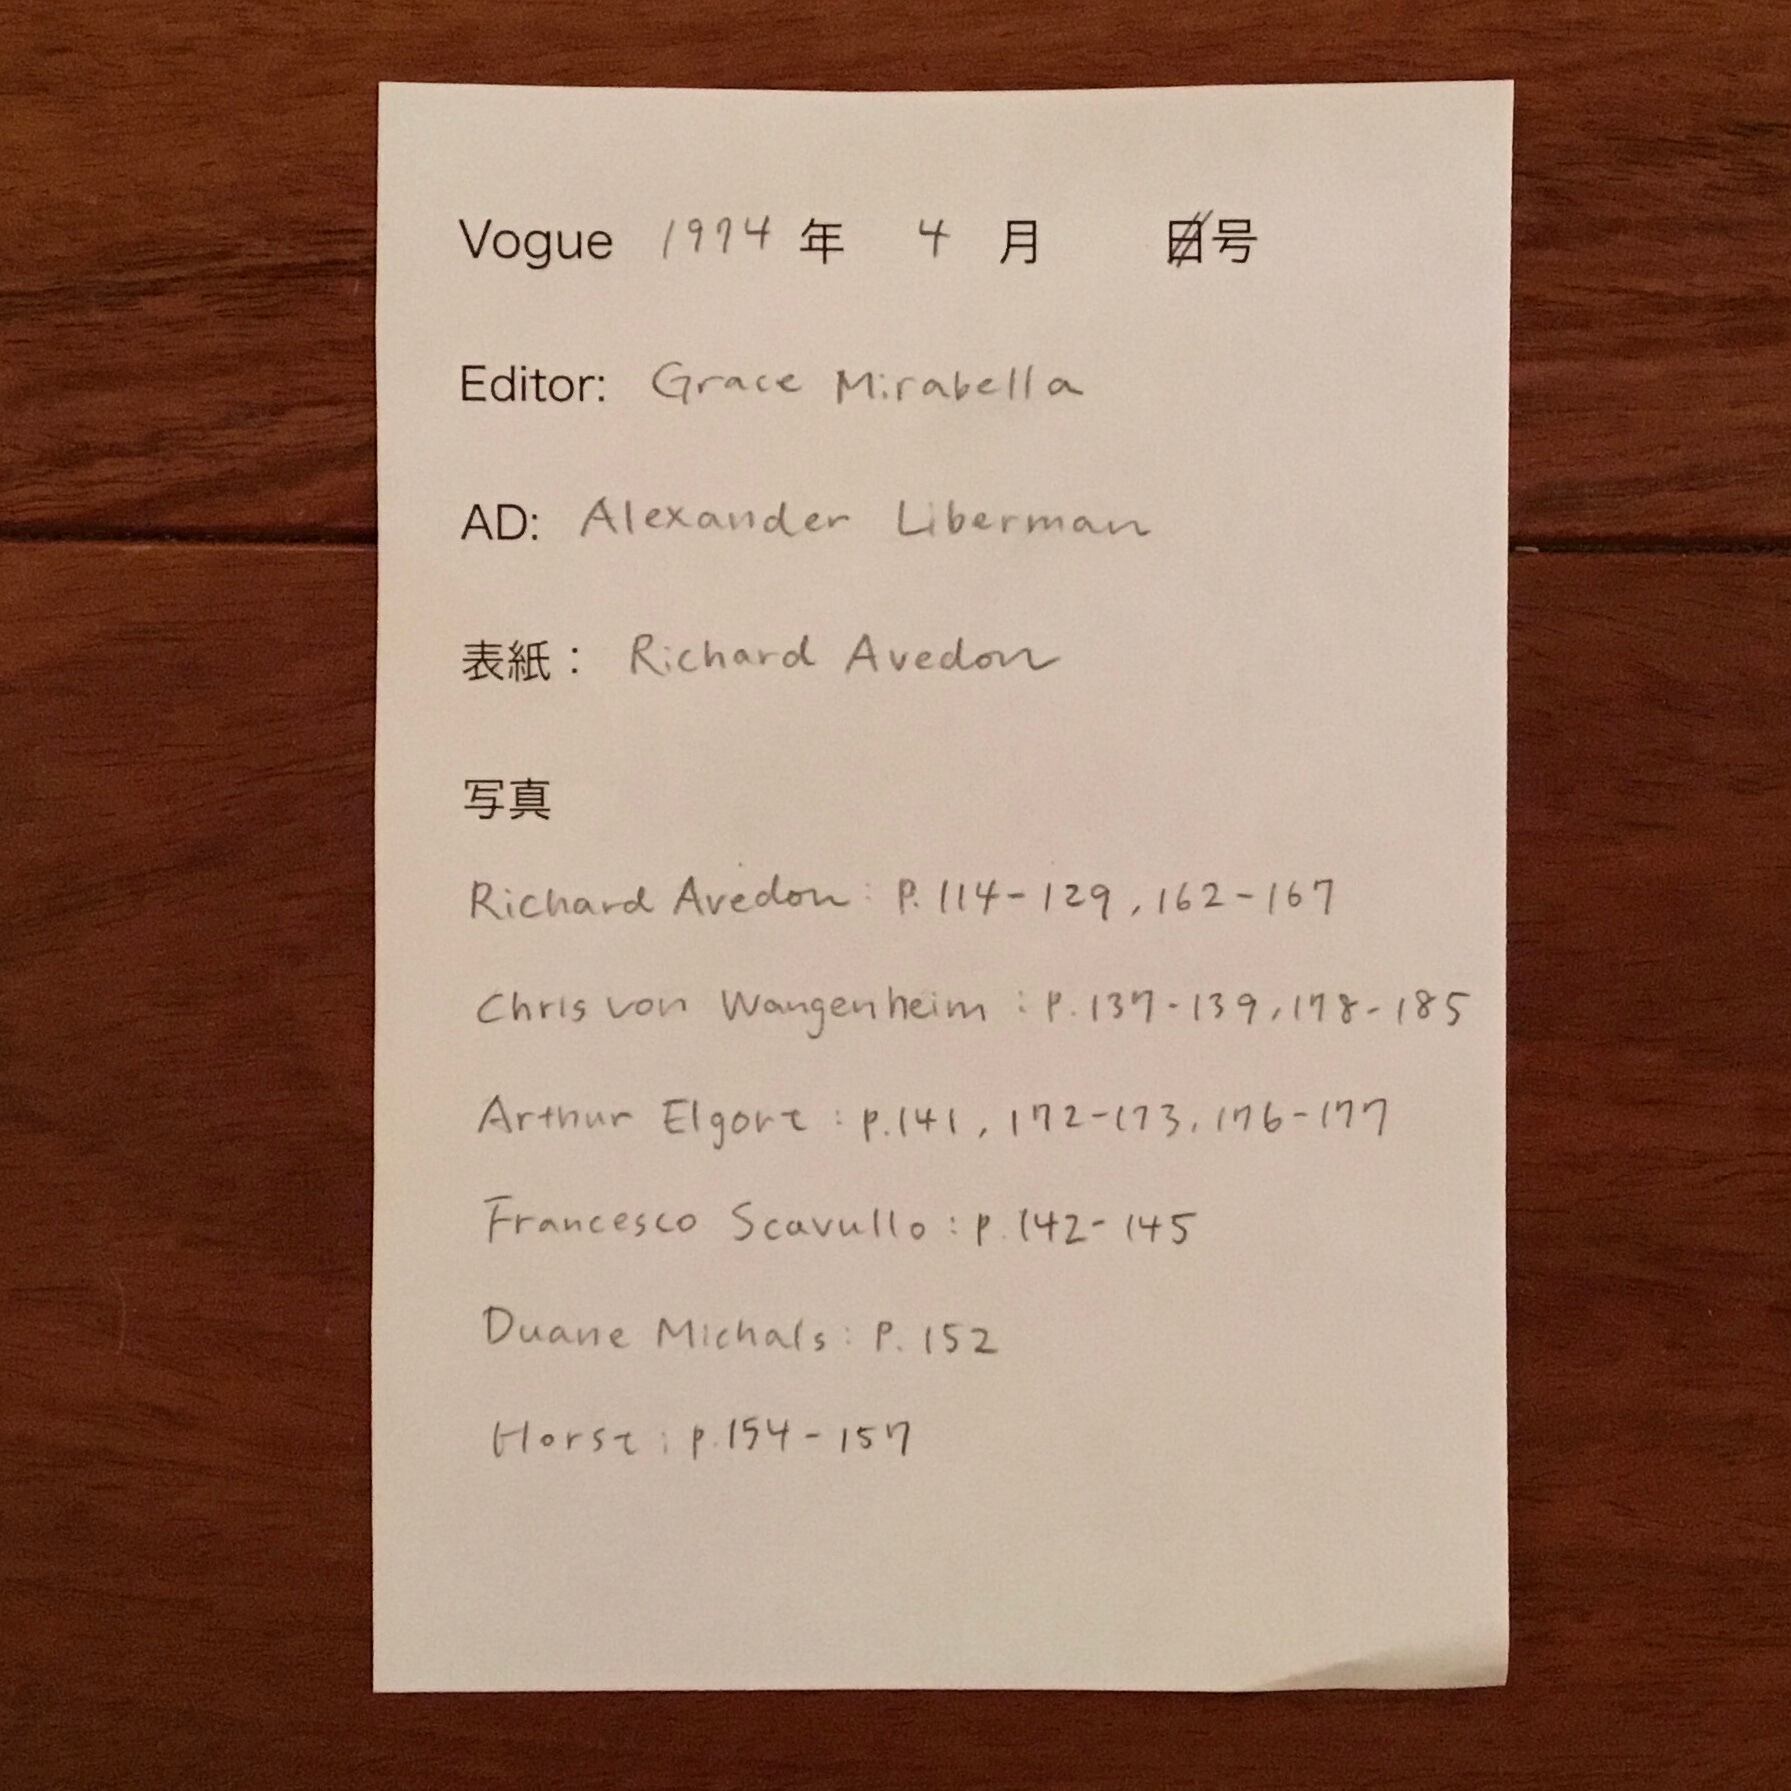 Vogue 1974 年 4 月 日号
Editor: Grace Mirabella
AD: Alexander Liberman
表紙： Richard Avedon
写真
Richard Avedon: P. 114-129, 162-167
Chris von Wangenheim: P. 137-139, 178-185
Arthur Elgort: P. 141, 172-173, 176-177
Francesco Scavullo: P. 142-145
Duane Michals: P. 152
Horst: P. 154-157